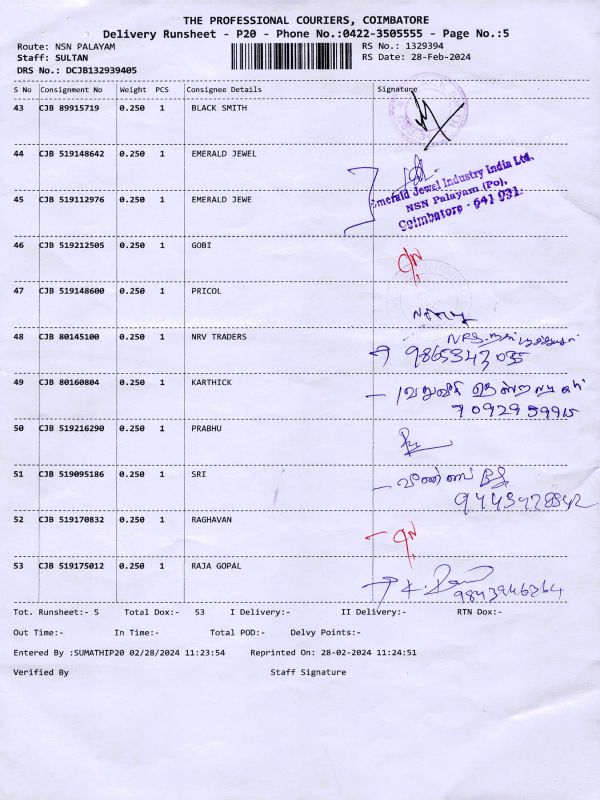 THE PROFESSIONAL COURIERS, COIMBATORE
Delivery Runsheet - P20 - Phone No.:0422-3505555 - Page No.:5
Route: NSN PALAYAM RS No.: 1329394
Staff: SULTAN RS Date: 28-Feb-2024
DRS No.: DCJB132939405
S No Consignment No Weight PCS Consignee Details Signature
43 CJB 89915719 0.250 1 BLACK SMITH
44 CJB 519148642 0.250 1 EMERALD JEWEL
Emerald Jewel Industry India Ltd.
NSN Palayam (Po),
Coimbatore - 641 031.
45 CJB 519112976 0.250 1 EMERALD JEWE
46 CJB 519212505 0.250 1 GOBI
47 CJB 519148600 0.250 1 PRICOL
48 CJB 80145100 0.250 1 NRV TRADERS
9865343035
49 CJB 80160804 0.250 1 KARTHICK
7092959915
50 CJB 519216290 0.250 1 PRABHU
51 CJB 519095186 0.250 1 SRI
52 CJB 519170832 0.250 1 RAGHAVAN
53 CJB 519175012 0.250 1 RAJA GOPAL
Tot. Runsheet:- 5 Total Dox:- 53 I Delivery:- II Delivery:- RTN Dox:-
Out Time:- In Time:- Total POD:- Delvy Points:-
Entered By :SUMATHIP20 02/28/2024 11:23:54 Reprinted On: 28-02-2024 11:24:51
Verified By Staff Signature